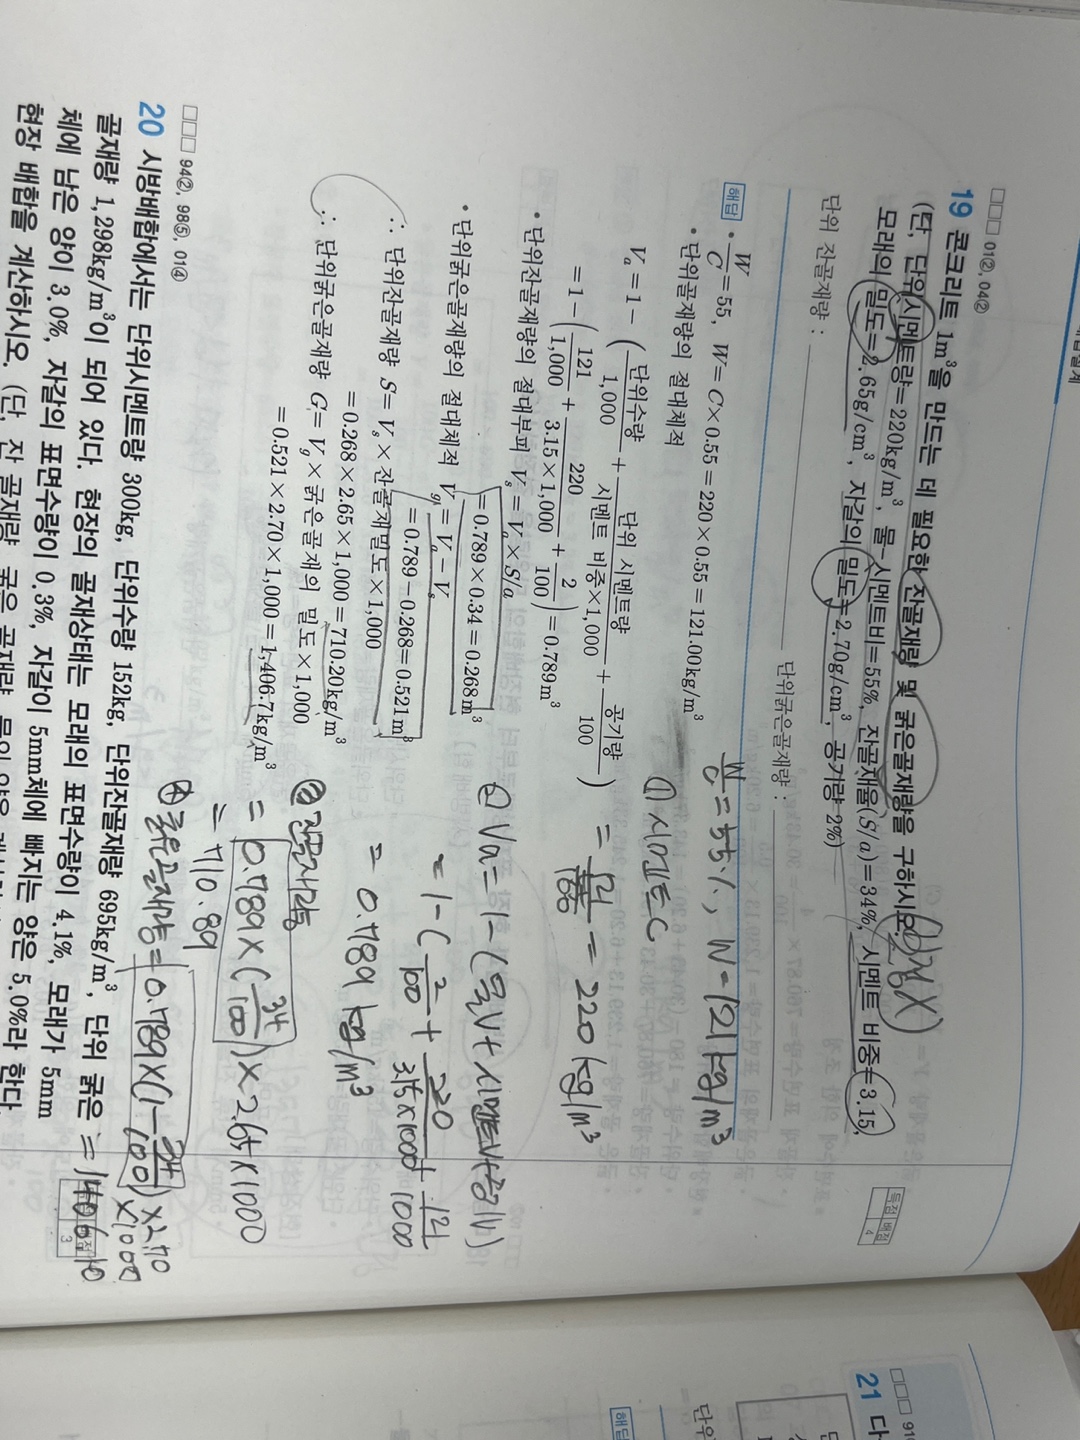 □□□ 01②, 04②
19 콘크리트 1m³을 만드는 데 필요한 잔골재량 및 굵은골재량을 구하시오.
(단, 단위시멘트량=220kg/m³, 물-시멘트비=55%, 잔골재율(S/a)=34%, 시멘트 비중=3.15,
모래의 밀도=2.65g/cm³, 자갈의 밀도=2.70g/cm³, 공기량 2%)
득점 배점
4
단위 잔골재량 :
단위굵은골재량 :
해답 • W/C=55, W=C×0.55=220×0.55=121.00kg/m³
• 단위골재량의 절대체적
V_a=1-(단위수량/1,000+단위 시멘트량/시멘트 비중×1,000+공기량/100)
=1-(121/1,000+220/3.15×1,000+2/100)=0.789m³
• 단위잔골재량의 절대부피 V_s=V_a×S/a
=0.789×0.34=0.268m³
• 단위굵은골재량의 절대체적 V_g=V_a-V_s
=0.789-0.268=0.521m³
∴ 단위잔골재량 S=V_s×잔골재밀도×1,000
=0.268×2.65×1,000=710.20kg/m³
∴ 단위굵은골재량 G=V_g×굵은골재의 밀도×1,000
=0.521×2.70×1,000=1,406.7kg/m³
W/C=55%, W=121kg/m³
① 시멘트 C
=121/0.55=220kg/m³
② Va=1-(물V+시멘트V+공기V)
=1-(2/100+220/3.15×1000+121/1000
=0.789 kg/m³
=0.789×(34/100)×2.65×1000
=710.89
④ 굵은골재량=0.789×(1-34/100)×2.70×1000
=1406.10
□□□ 94②, 98⑤, 01④
20 시방배합에서는 단위시멘트량 300kg, 단위수량 152kg, 단위잔골재량 695kg/m³, 단위 굵은
골재량 1,298kg/m³이 되어 있다. 현장의 골재상태는 모래의 표면수량이 4.1%, 모래가 5mm
체에 남은 양이 3.0%, 자갈의 표면수량이 0.3%, 자갈이 5mm체에 빠지는 양은 5.0%라 한다.
현장 배합을 계산하시오. (단, 잔 골재량
배점
3
□□□
21 다
해답
단위